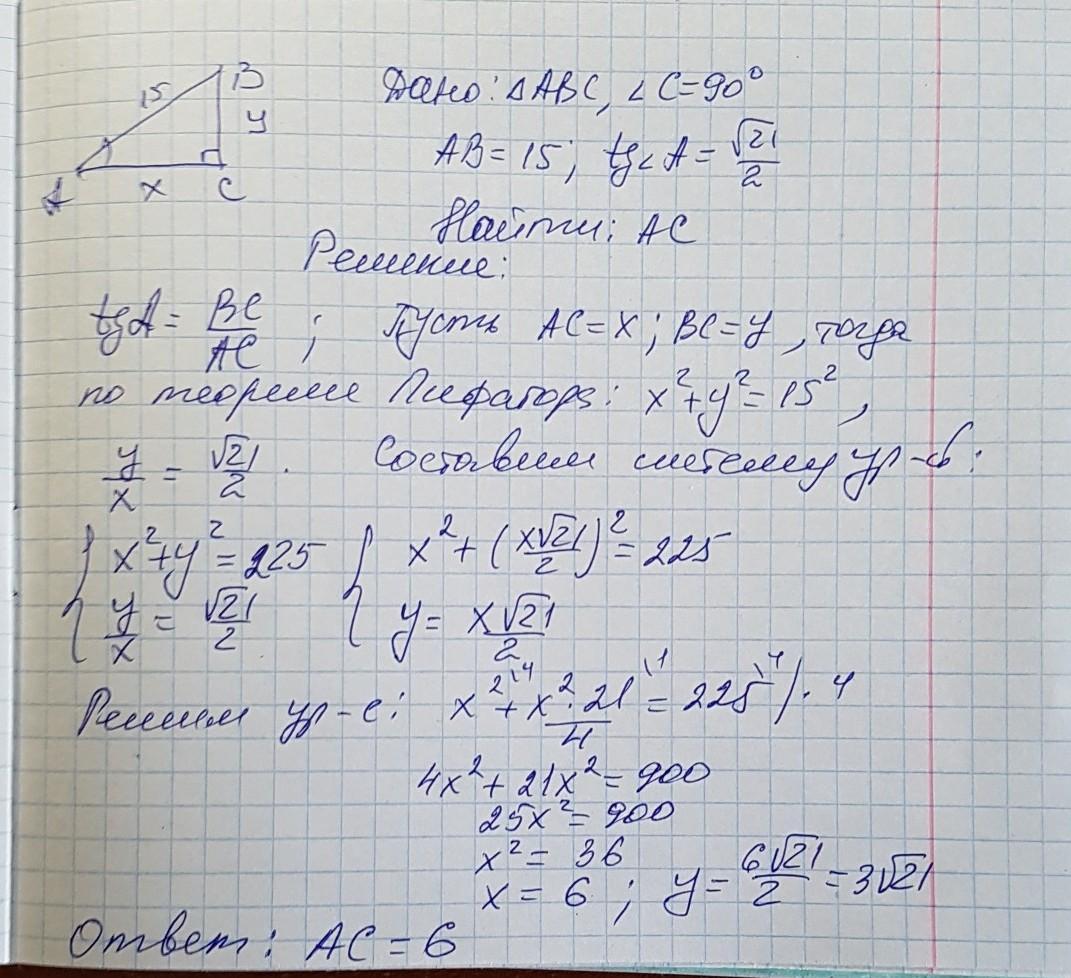 15 B y A x C
Дано: △ABC, ∠C=90°
AB = 15; tg∠A = √21/2
Найти: AC
Решение:
tgA = BC/AC ; Пусть AC = x; BC = y, тогда
по теореме Пифагора: x² + y² = 15²,
y/x = √21/2. Составим систему ур-й:
{ x² + y² = 225 { x² + (x√21/2)² = 225
y/x = √21/2 y = x√21/2
Решим ур-е: x²\4 + x²·21/4 \1 = 225\4 /· 4
4x² + 21x² = 900
25x² = 900
x² = 36
x = 6 ; y = 6√21/2 = 3√21
Ответ: AC = 6